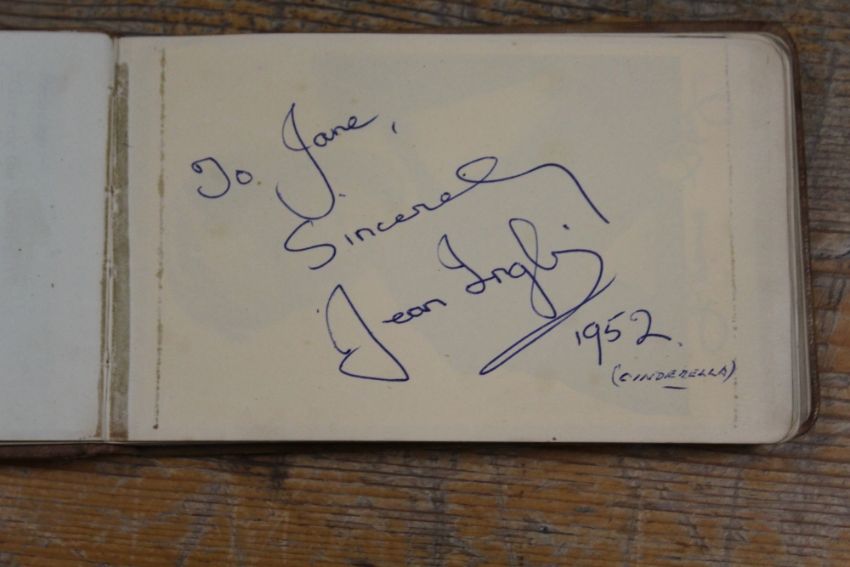 To Jane,
Sincerely
Jean Inglis
1952.
(CINDERELLA)